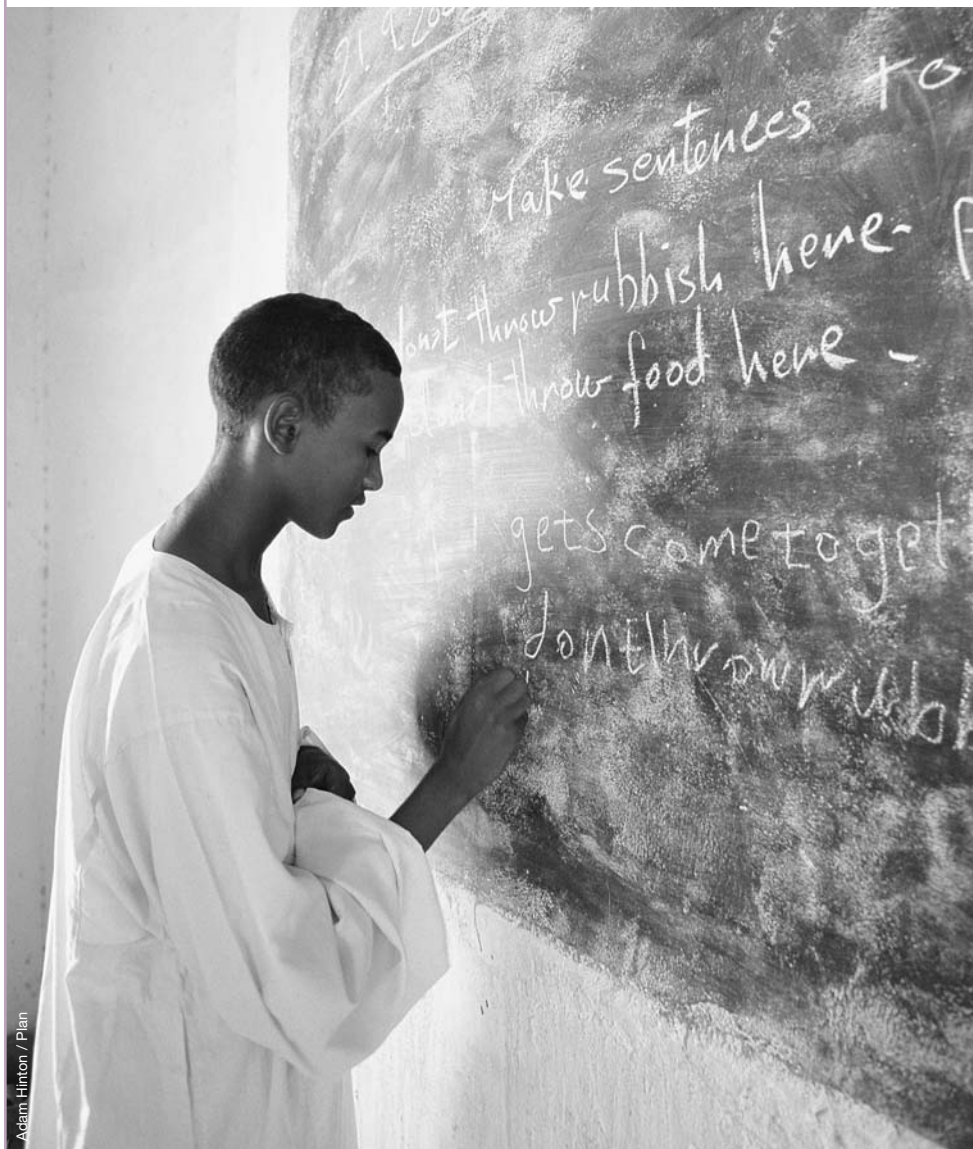 Make sentences to
dont throw rubbish here-
dont throw food here -
gets come to get
dont throw rubb
Adam Hinton / Plan